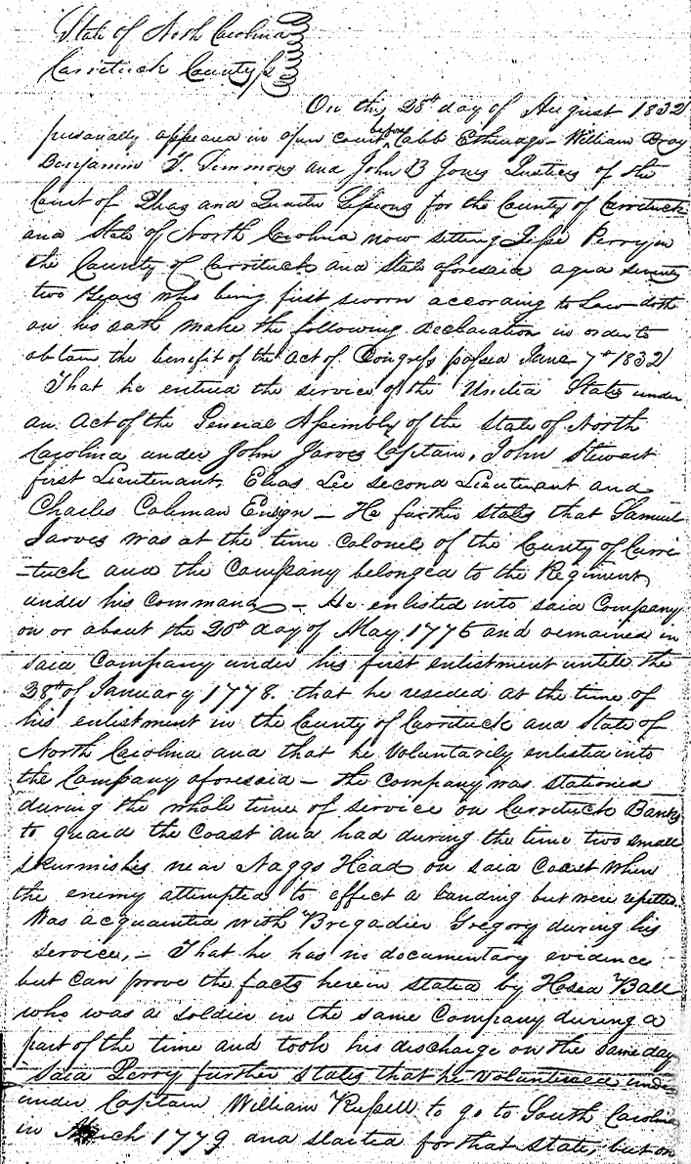 State of North Carolina
Carrituck County Ss
On this 28th day of August 1832
personally appeared in open court before Caleb Etheridge - William Bray
Benjamin T. Simmons and John B Jones Justices of the
Court of Pleas and Quarter Sessions for the County of Carrituck
and State of North Carolina now setting Jesse Perry in
the County of Carrituck and State aforesaid aged seventy
two Years who being first sworn according to Law doth
on his oath make the following Declaration in order to
obtain the benefit of the act of Congress passed June 7th 1832
That he entered the service of the United States under
an Act of the General Assembly of the State of North
Carolina under John Jarves Captain, John Stewart
first Lieutenant, Elias Lee second Lieutenant and
Charles Coleman Ensign - He further states that Samuel
Jarves was at the time Colonel of the County of Carri
-tuck and the Company belonged to the Regiment
under his command - He enlisted into said Company
on or about the 20th day of May 1776 and remained in
said Company under his first enlistment untele the
28th of January 1778. that he resided at the time of
his enlistment in the County of Carrituck and State of
North Carolina and that he Voluntarily enlisted into
the Company aforesaid - the Company was stationed
during the whole time of service on Carrituck Banks
to guard the Coast and had during the time two small
skurmishes near Naggs Head on said Coast when
the enemy attempted to effect a landing but were repelled
Was acquainted with Brigadier Gregory during his
service, - That he has no documentary evidence
but can prove the facts herein stated by Hosea Ball
who was a soldier in the same Company during a
part of the time and took his discharge on the same day
Said Perry further states that he Volunteered under
under Captain William Russell to go to South Carolina
in March 1779 and started for that State, but on